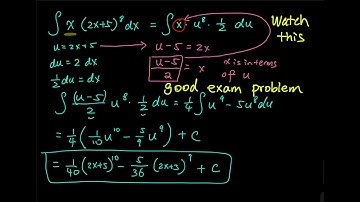 ∫ x (2x+5)⁸ dx = ∫ x · u⁸ · 1/2 du Watch this
u = 2x+5 → u-5 = 2x
du = 2 dx (u-5)/2 = x x is in terms of u
1/2 du = dx good exam problem
∫ (u-5)/2 u⁸ · 1/2 du = 1/4 ∫ u⁹ - 5u⁸ du
= 1/4 (1/10 u¹⁰ - 5/9 u⁹) + C
= 1/40 (2x+5)¹⁰ - 5/36 (2x+5)⁹ + C